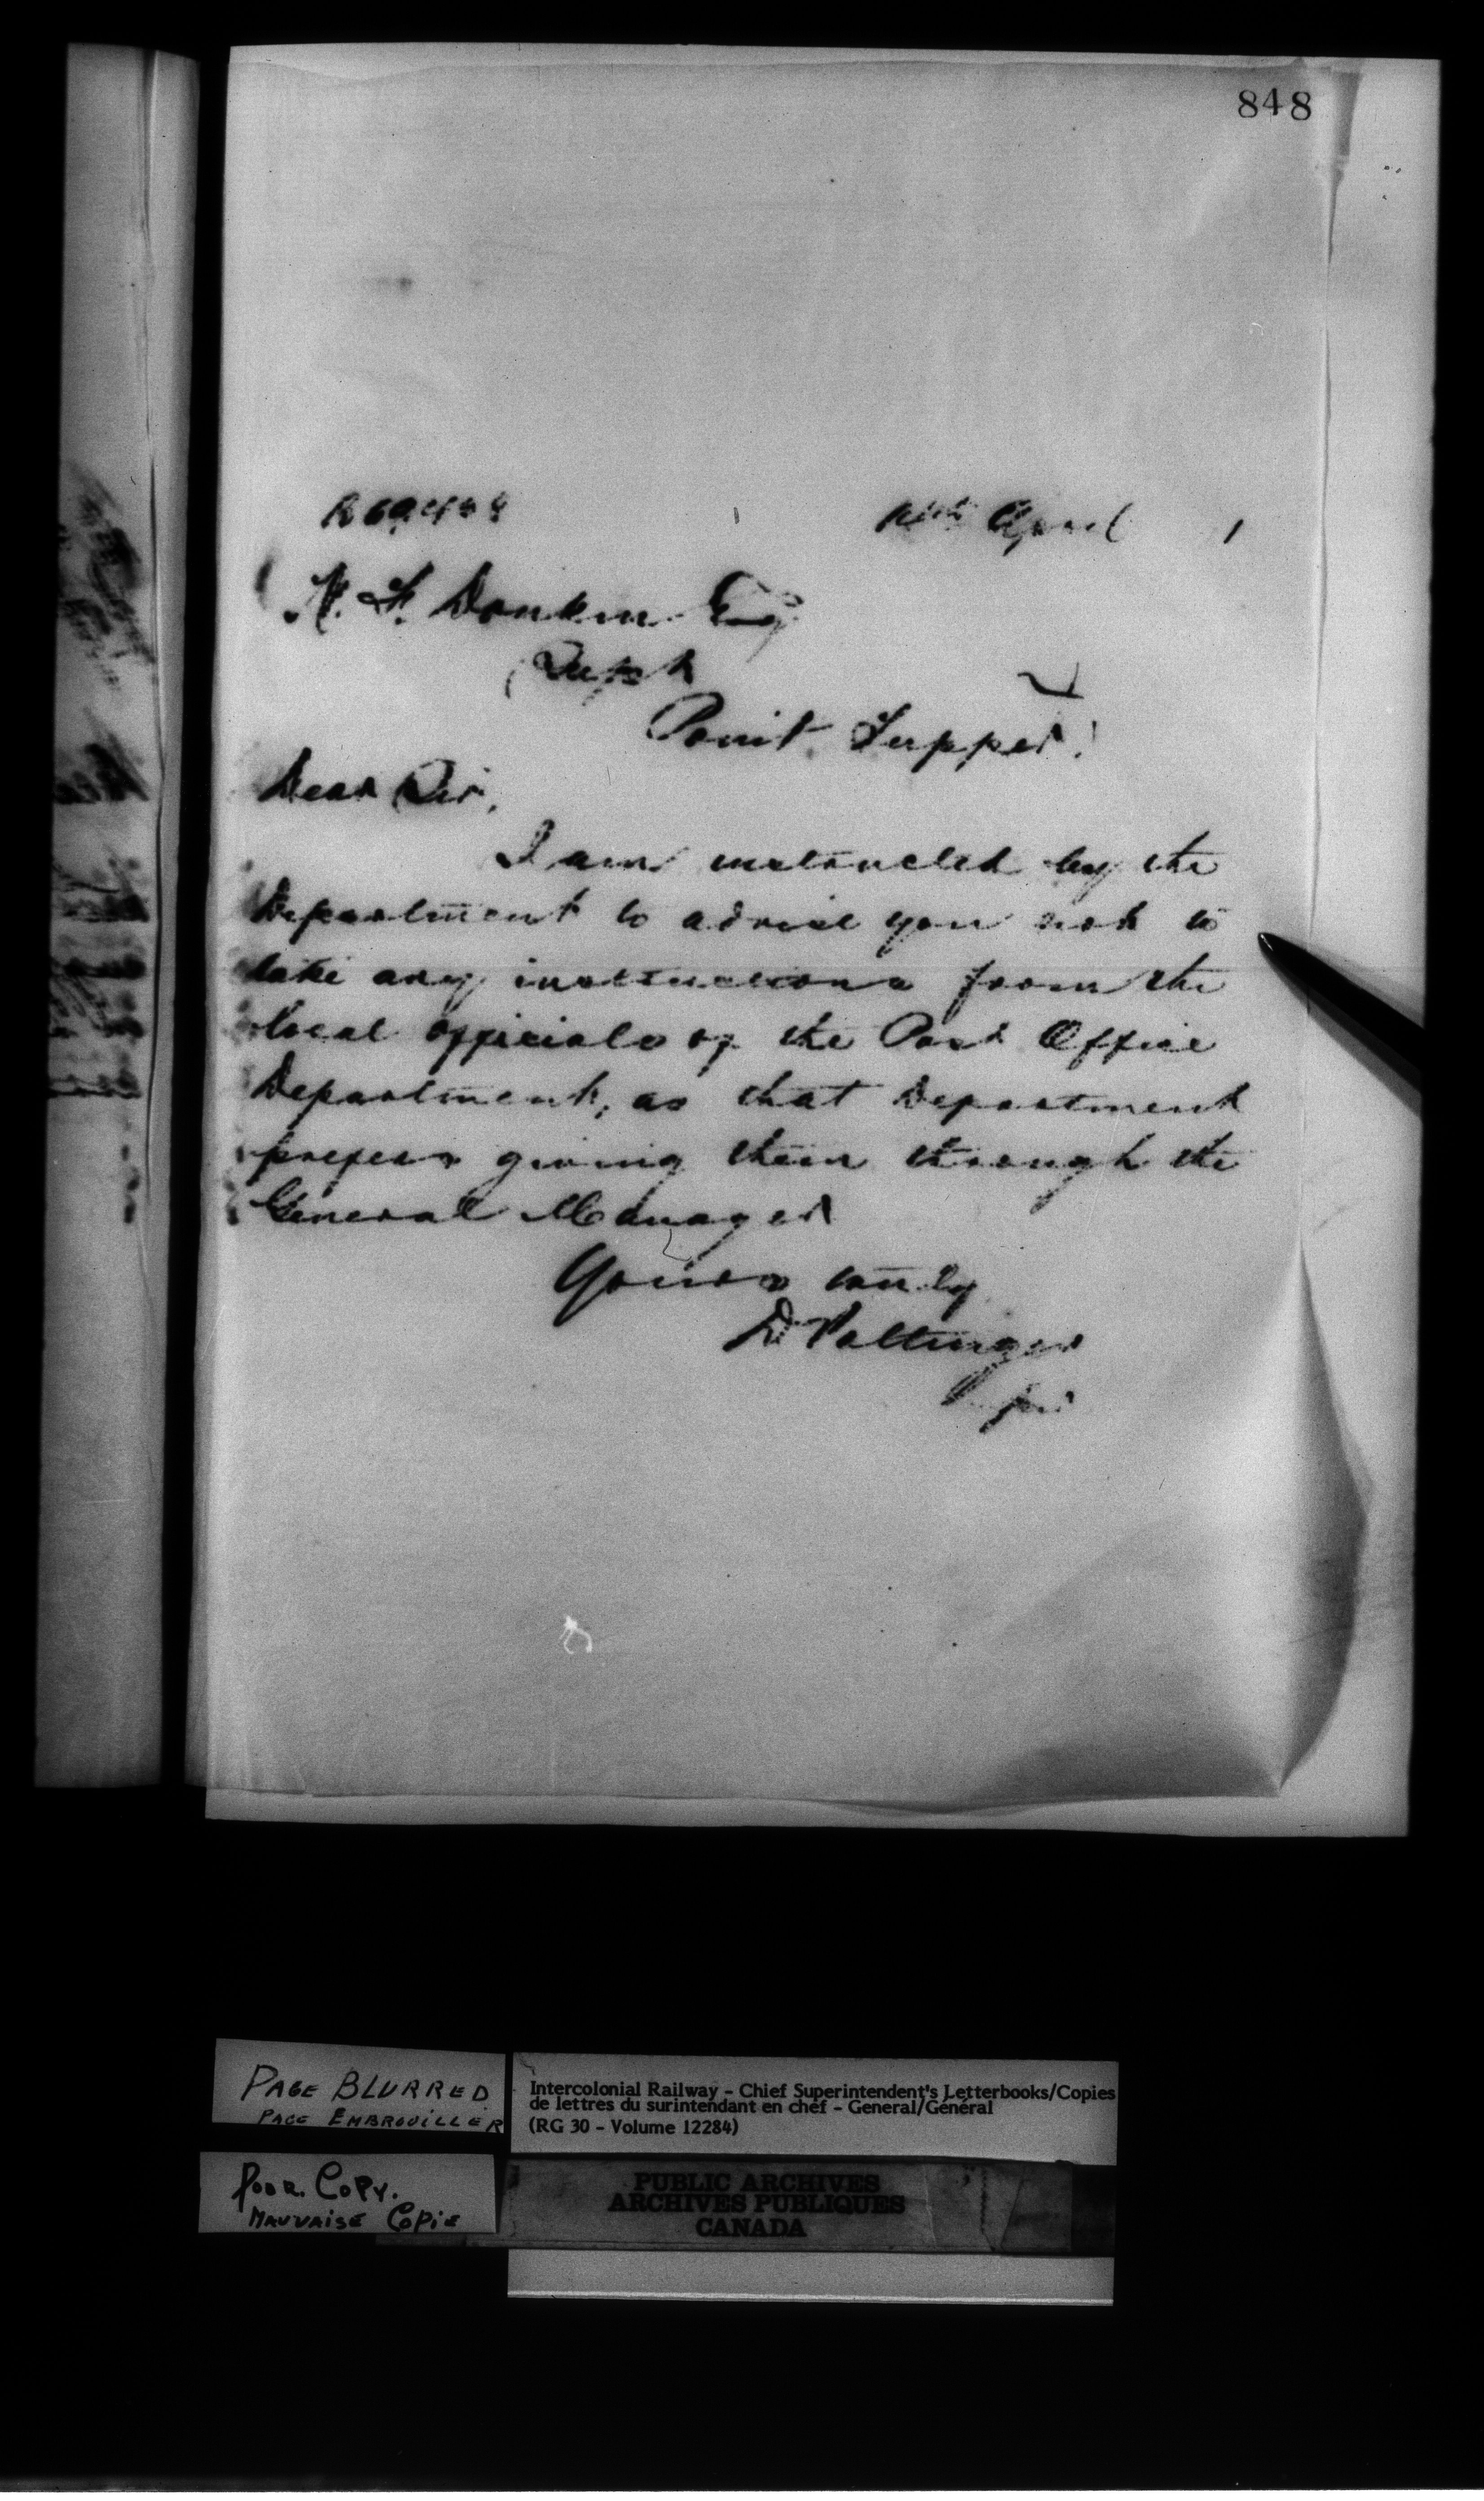 848
April 1
H. F. Donkin Esq
Supt
Point Tupper.
Dear Sir,
I am instructed by the
Department to advise you not to
take any instructions from the
local officials of the Post Office
Department, as that Department
prefers giving them through the
General Manager
Yours truly
D Pottinger
PAGE BLURRED
PAGE EMBROUILLER
Intercolonial Railway - Chief Superintendent's Letterbooks/Copies
de lettres du surintendant en chef - General/Général
(RG 30 - Volume 12284)
POOR COPY.
MAUVAISE COPIE
PUBLIC ARCHIVES
ARCHIVES PUBLIQUES
CANADA